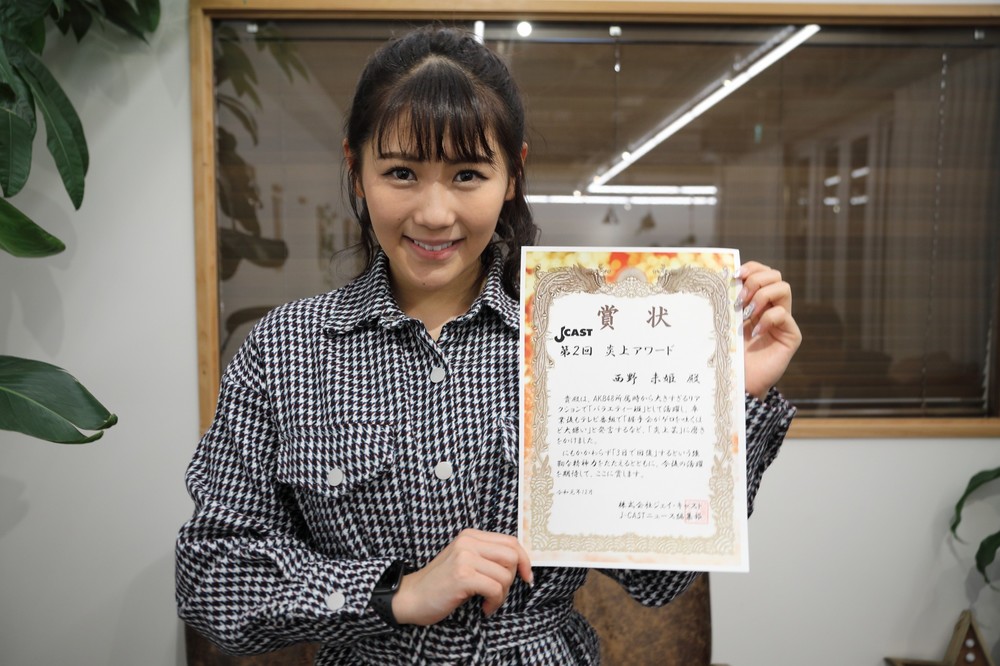 賞 状
J CAST
第2回 炎上アワード
西野 未姫 殿
貴殿は、AKB48所属時から大きすぎるリア
クションで「バラエティー班」として活躍し、卒
業後もテレビ番組で「握手会がゲロを吐くほ
ど大嫌い」と発言するなど、「炎上芸」に磨き
をかけました。
にもかかわらず「3日で回復」するという強
靭な精神力をたたえるとともに、今後の活躍
を期待して、ここに賞します。
令和元年12月
株式会社ジェイ・キャスト
J-CASTニュース編集部